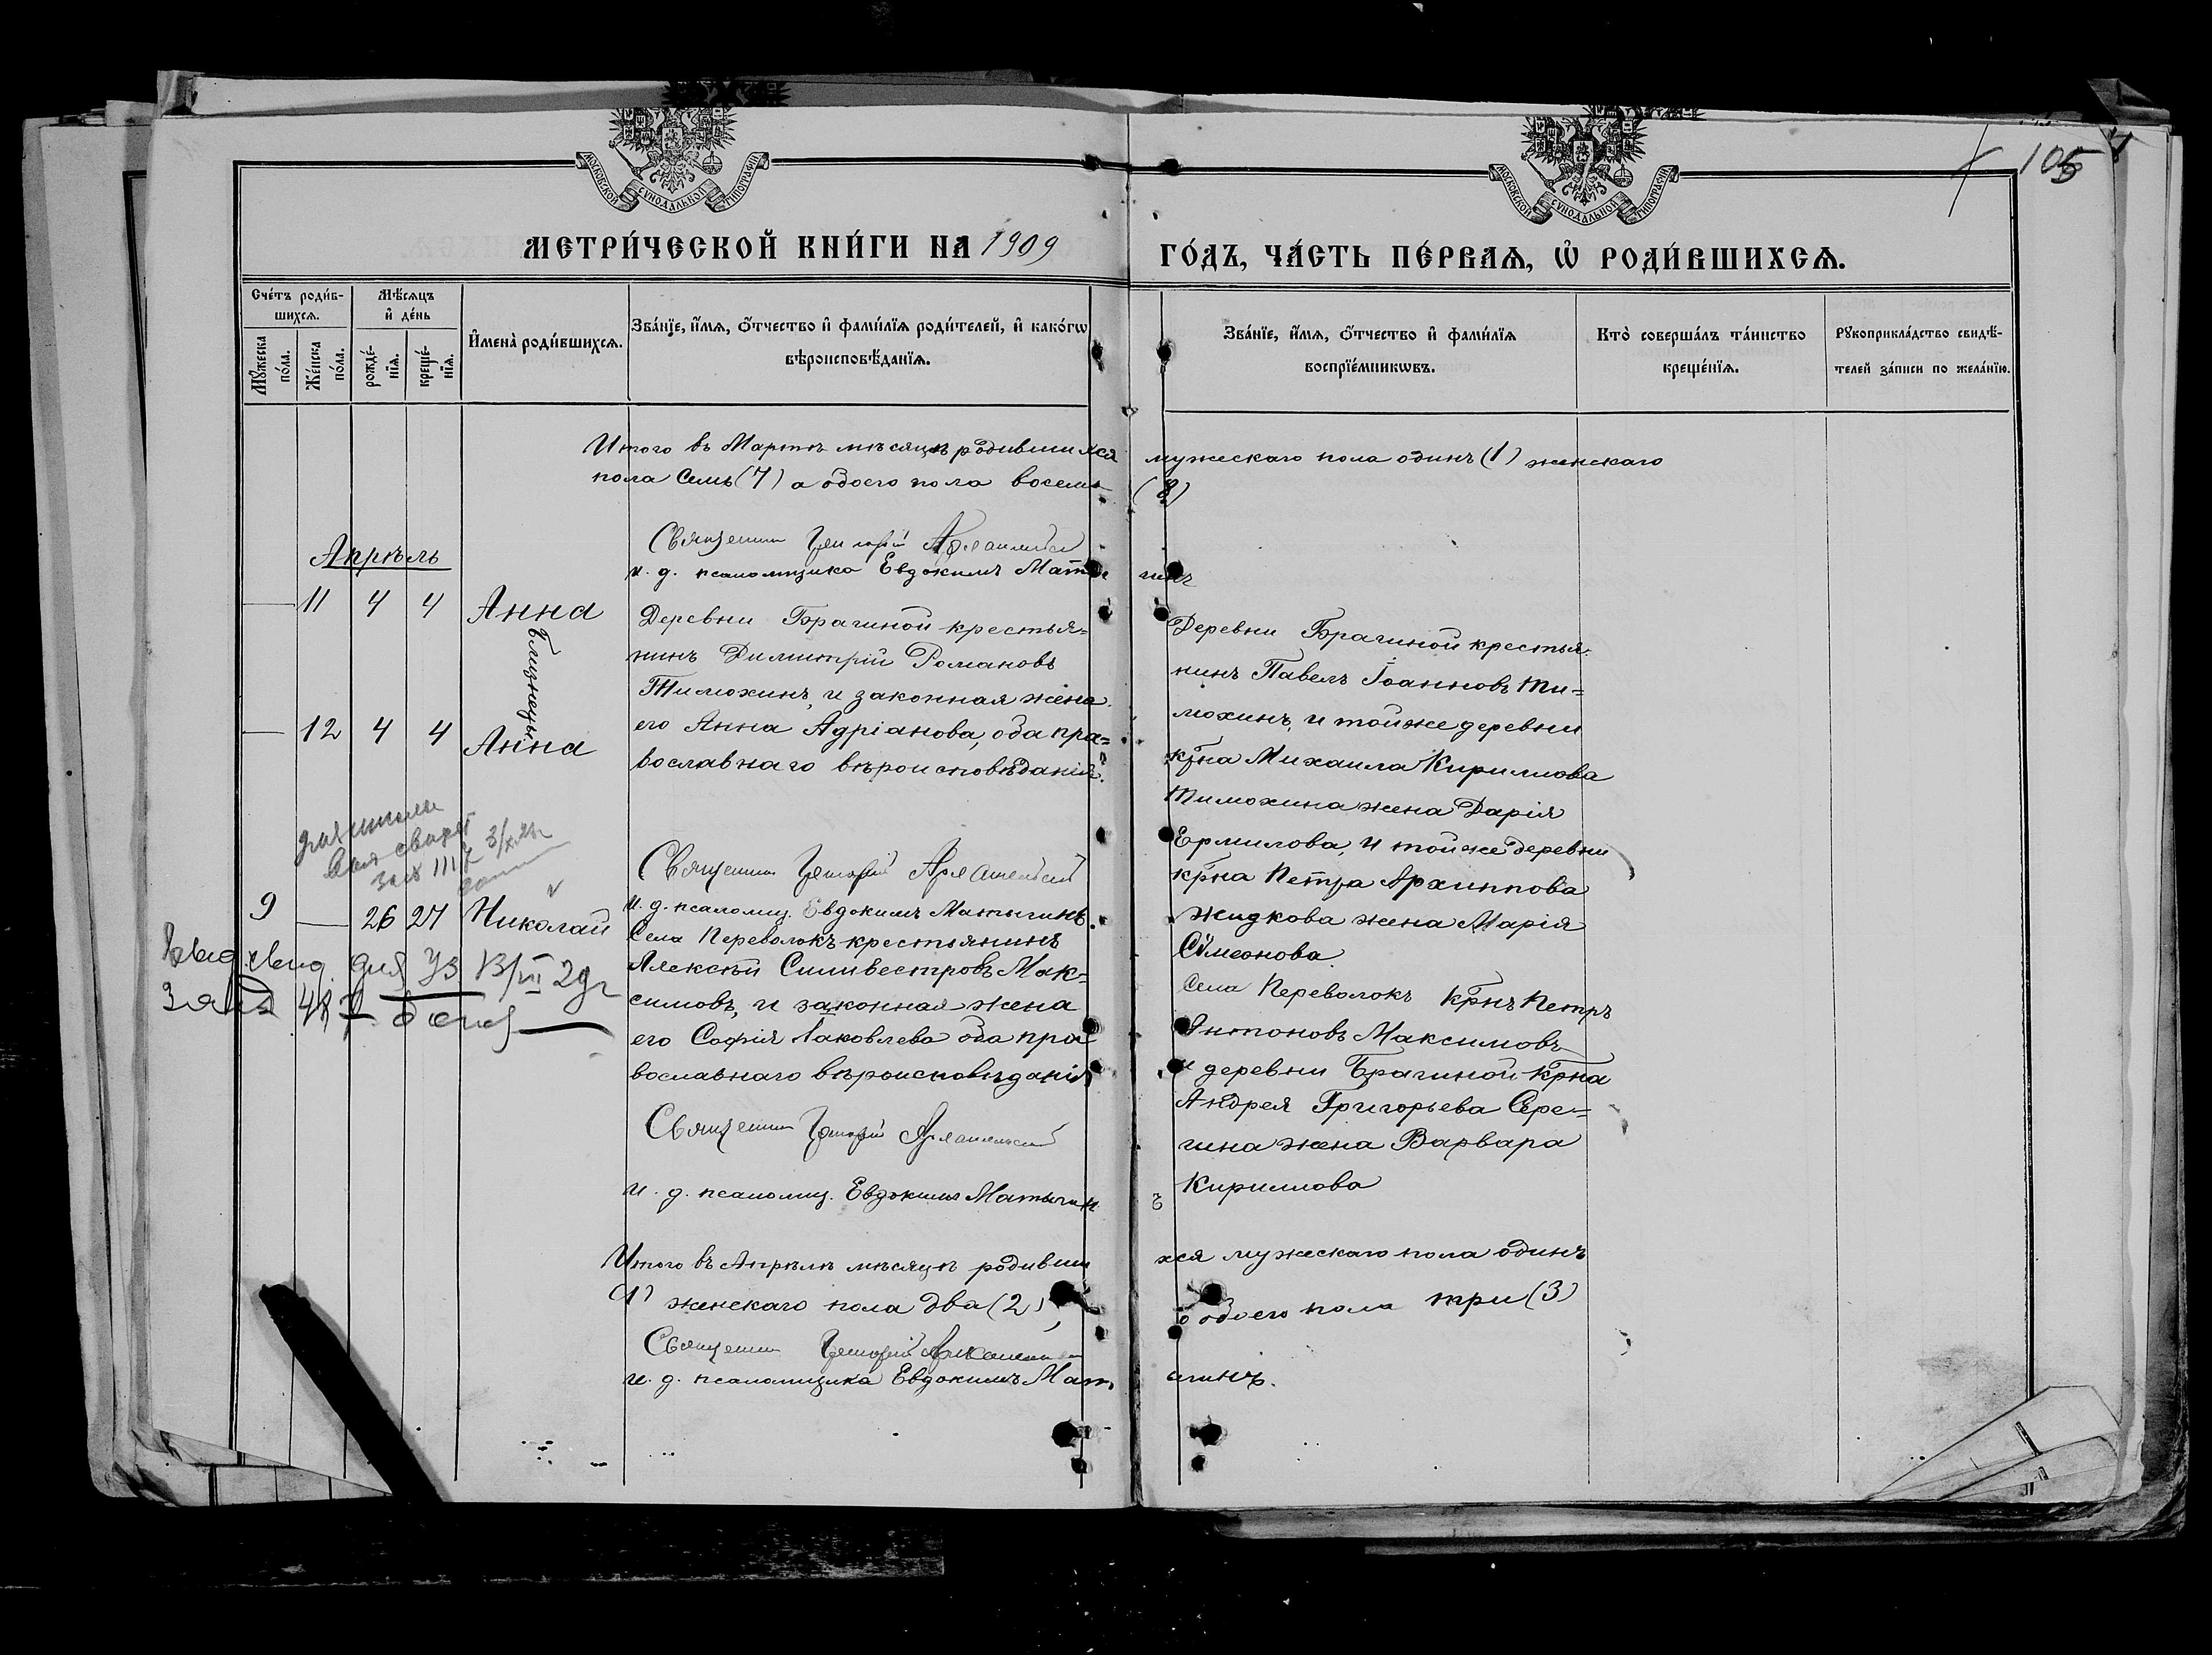 105
МОСКОВСКОЙ СѴНОДАЛЬНОЙ ТИПОГРАФІИ
МОСКОВСКОЙ СѴНОДАЛЬНОЙ ТИПОГРАФІИ
МЕТРИ́ЧЕСКОЙ КНИ́ГИ НА 1909 ГО́ДЪ, ЧА́СТЬ ПЕ́РВАѦ, Ѡ҆ РОДИ́ВШИХСѦ.
Сче́тъ роди́в-
шихсѧ.
Мѣ́сѧцъ
и҆ де́нь
Мꙋ́жеска
по́ла.
Же́нска
по́ла.
рожде́-
нїѧ.
креще́-
нїѧ.
И҆мена̀ роди́вшихсѧ.
Зва́нїе, и҆́мѧ, ѻ҆́тчество и҆ фами́лїѧ роди́телей, и҆ како́гѡ
вѣроисповѣ́данїѧ.
Зва́нїе, и҆́мѧ, ѻ҆́тчество и҆ фами́лїѧ
воспрїе́мникѡвъ.
Кто̀ соверша́лъ та́инство
креще́нїѧ.
Рꙋкоприкла́дство свидѣ́-
телей за́писи по жела́нїю.
Итого въ Мартѣ мѣсяцѣ родившихся мужескаго пола одинъ (1) женскаго
пола семь (7) а обоего пола восемь (8)
Священникъ Григорій
и. д. псаломщика Евдокимъ
Апрѣль
11 4 4 Анна
Близнецы
12 4 4 Анна
Деревни Брагиной крестья=
нинъ Димитрій Романовъ
Тимохинъ, и законная жена
его Анна Адріанова, оба пра=
вославнаго вѣроисповѣданія.
Деревни Брагиной крестья=
нинъ Павелъ Іоанновъ Ти=
мохинъ, и тойже деревни
кр̃на Михаила Кириллова
Тимохина жена Дарія
Ермилова, и тойже деревни
кр̃на Петра Архиппова
Жидкова жена Марія
Сѵмеонова.
Священникъ Григорій
и. д. псаломщ. Евдокимъ Матыгинъ.
9 26 27 Николай
Села Переволокъ крестьянинъ
Алексѣй Силивестровъ Мак=
симовъ, и законная жена
его Софія Іаковлева оба пра
вославнаго вѣроисповѣданія
Села Переволокъ кр̃нъ Петръ
Антоновъ Максимовъ
и деревни Брагиной кр̃на
Андрея Григорьева Сере=
гина жена Варвара
Кириллова
Священникъ Григорій
и. д. псаломщ. Евдокимъ Матыгинъ
Итого въ Апрѣлѣ мѣсяцѣ родившихся мужескаго пола одинъ
(1) женскаго пола два (2), а обоего пола три (3)
Священникъ Григорій
и. д. псаломщика Евдокимъ